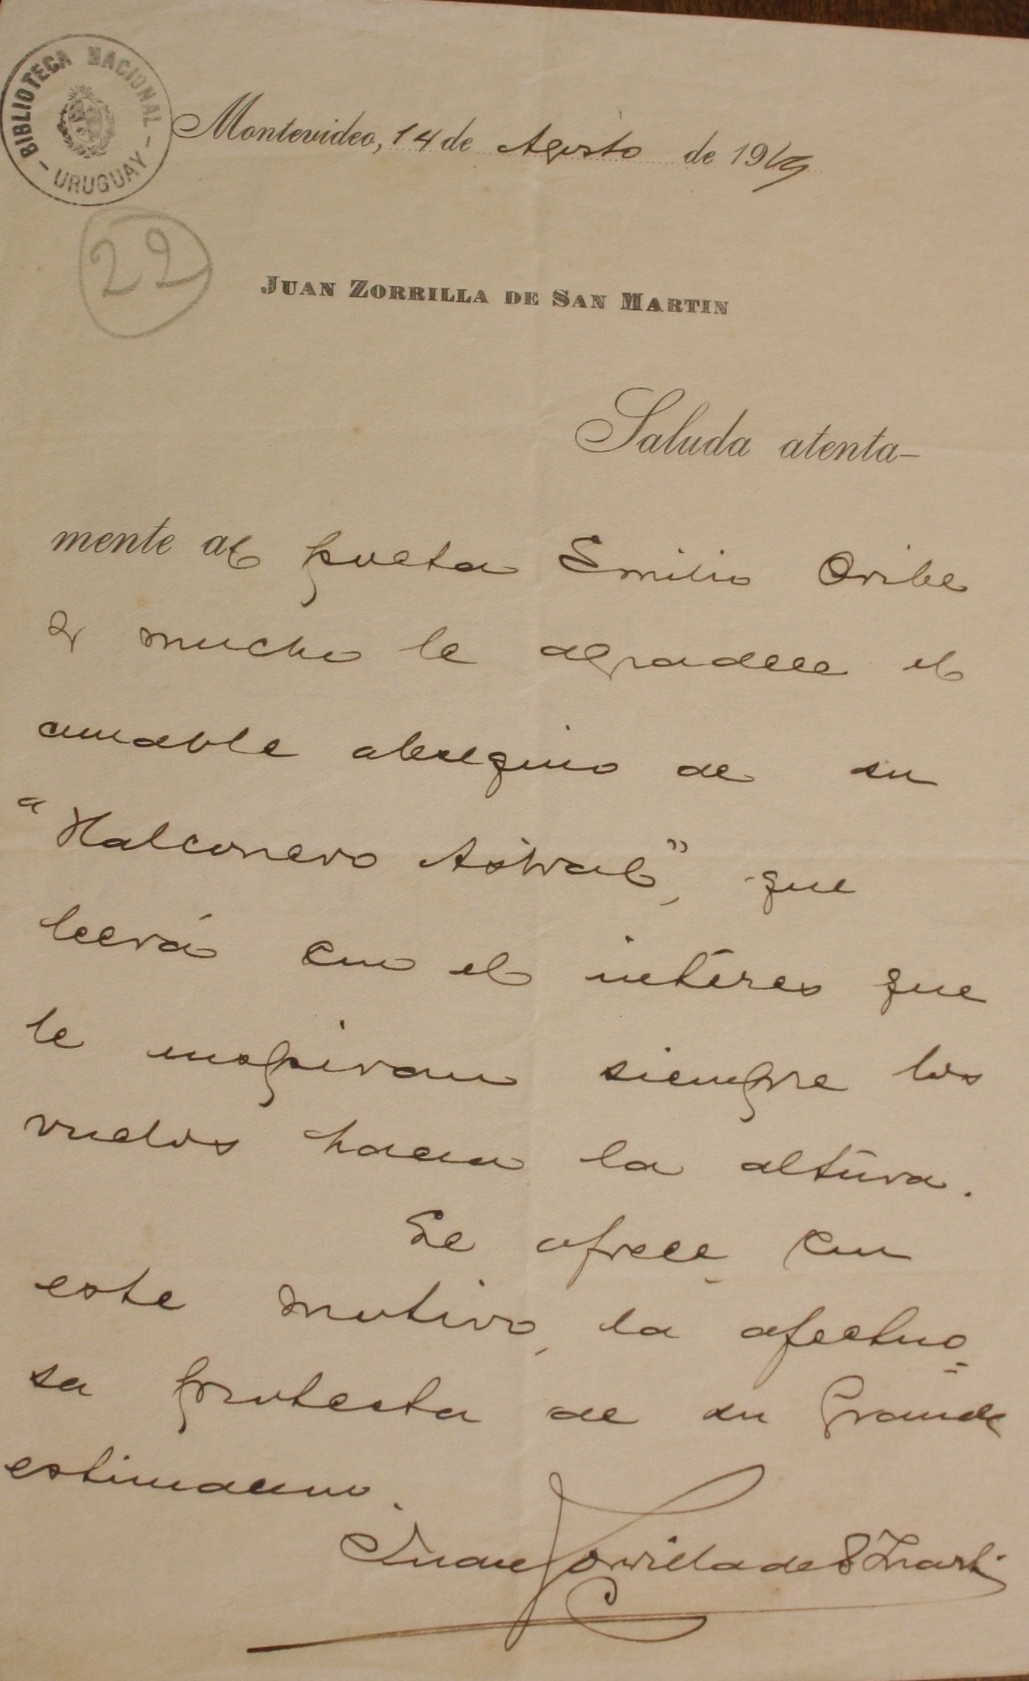 BIBLIOTECA NACIONAL
- URUGUAY -
Montevideo, 14 de Agosto de 1919
22
JUAN ZORRILLA DE SAN MARTIN
Saluda atenta-
mente al poeta Emilio Oribe
y mucho le agradece el
amable obsequio de su
"Halconero Astral", que
leerá con el intéres que
le inspiran siempre los
vuelos hacia la altura.
Le ofrece, con
este motivo, la afectuo=
sa protesta de su grande
estimacion.
Juan Zorrilla de S Marti